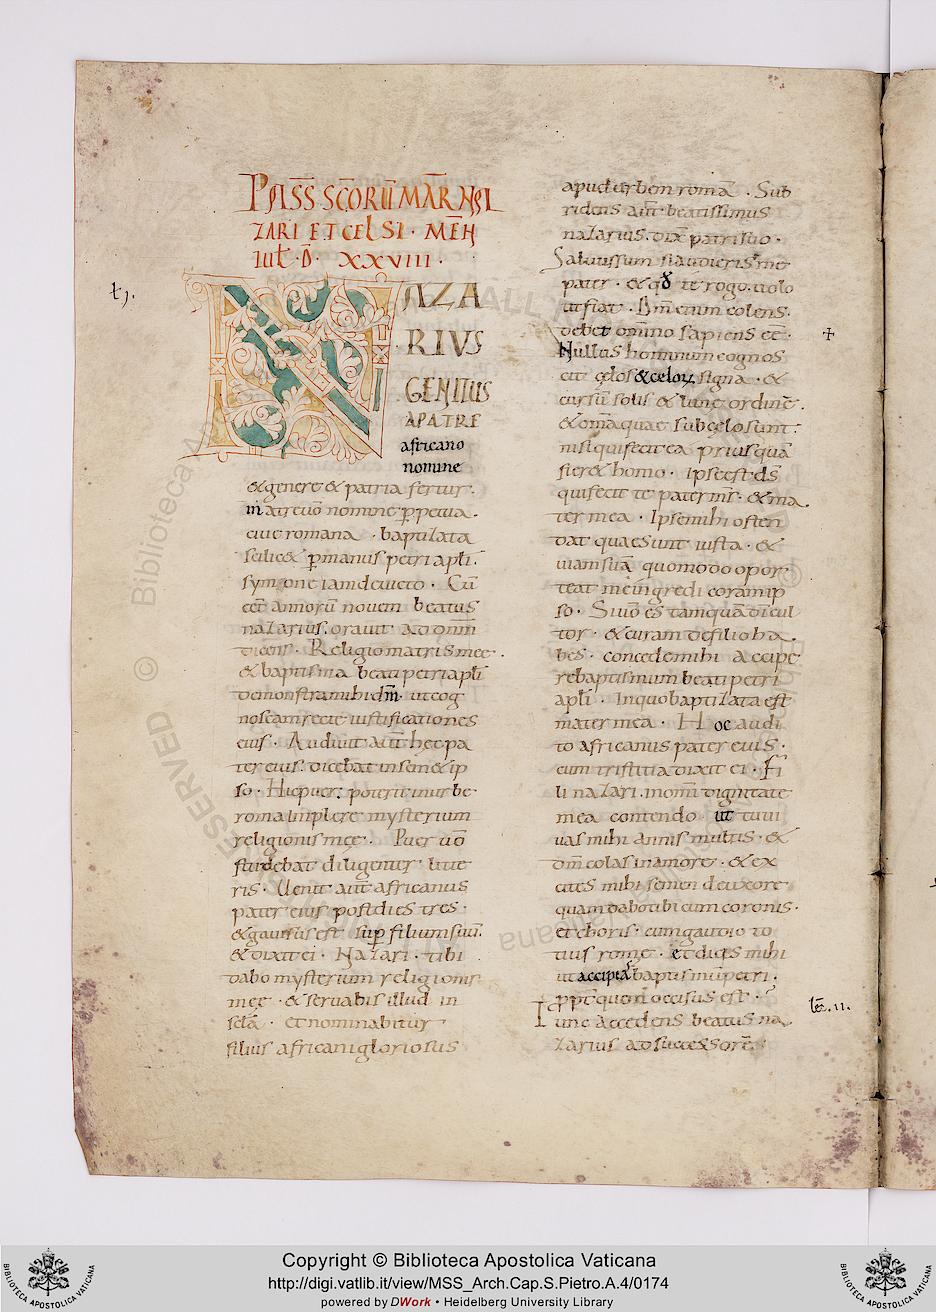 PASS SCORU MAR NA
ZARI ET CELSI · MEN
IUL · D · XXVIII ·
NAZA
RIVS
GENITUS
A PATRE
africano
nomine
& genere & patria fertur.
matre uo nomine ppetua.
ciue romana · baptizata
scilic& p manus petri apli.
symone iam deuicto · Cu
eet annoru nouem beatus
nazarius. orauit ad dnm
dicens · Religio matris mee.
& baptisma beati petri apli
demonstra mihi dm · ut cog
noscam recte iustificationes
eius · Audiuit aut hec pa
ter eius. dicebat in sem&ip
so · Hic puer. poterit in urbe
roma implere mysterium
religionis mee · Puer uo
studebat diligenter litte
ris · Uenit aut africanus
pater eius post dies tres ·
& gauisus est sup filium suu.
& dixit ei · Nazari · tibi
dabo mysterium religionis
mee · & seruabis illud in
scla · et nominabitur
filius africani gloriosus
apud urbem roma · Sub
ridens aut beatissimus
nazarius. dix patri suo ·
Saluus sum si audieris me
pater · & qd te rogo. uolo
ut fiat · Dm enim colens.
debet omino sapiens ee ·
Nullus hominum cognos
cit celos & celor signa · &
cursu solis & lune ordine.
& oma quae sub celo sunt.
nisi qui fecit ea priusqua
fier& homo · Ipse est ds
qui fecit te pater mi · & ma
ter mea · Ipse mihi osten
dat quae sunt iusta · &
uiam sua quomodo opor
teat me ingredi coram ip
so · Si uo es tamqua di cul
tor · & curam de filio ha
bes · concede mihi accipe
re baptismum beati petri
apli · In quo baptizata est
mater mea · Hoc audi
to africanus pater eius ·
cum tristitia dixit ei · Fi
li nazari. in omi dignitate
mea contendo ut tu ui
uas mihi annis multis · &
dm colas in amore · & ex
cites mihi semen de uxore
quam dabo tibi cum coronis ·
et choris · cum gaudio to
tius rome · et dices mihi
ut accipia baptismu petri ·
ppt quem occisus est ·
Tunc accedens beatus na
zarius ad successore
lec. II.
Copyright © Biblioteca Apostolica Vaticana
http://digi.vatlib.it/view/MSS_Arch.Cap.S.Pietro.A.4/0174
powered by DWork • Heidelberg University Library